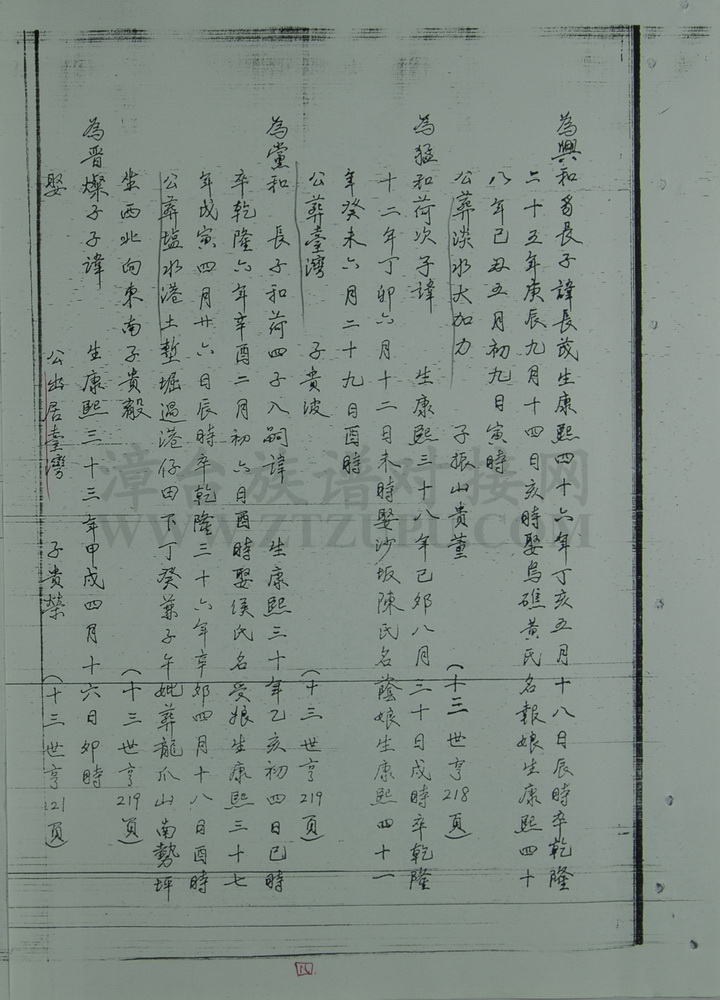 為興和爵長子諱長茂生康熙四十六年丁亥五月十八日辰時卒乾隆
二十五年庚辰九月十四日亥時娶烏礁黃氏名報娘生康熙四十
八年己丑五月初九日寅時
公葬淡水大加力 子振山貴董 (十三世亨218頁)
為猛和荷次子諱 生康熙三十八年己卯八月三十日戌時卒乾隆
十二年丁卯六月十二日未時娶沙坂陳氏名蔭娘生康熙四十一
年癸未六月二十九日酉時
公葬臺灣 子貴波 (十三世亨219頁)
為黨和 長子和荷四子入嗣諱 生康熙三十年乙亥初四日巳時
卒乾隆六年辛酉二月初六日酉時娶侯氏名受娘生康熙三十七
年戊寅四月廿六日辰時卒乾隆三十六年辛卯四月十八日酉時
公葬塩水港土塹堀過港仔田下丁癸兼子午妣葬龍爪山南勢坪
坐西北向東南子貴穀 (十三世亨219頁)
為晋燦子子諱 生康熙三十三年甲戌四月十六日卯時
娶 公出居臺灣 子貴榮 (十三世亨121頁)
漳台族谱对接网
WWW.ZTZUPU.COM